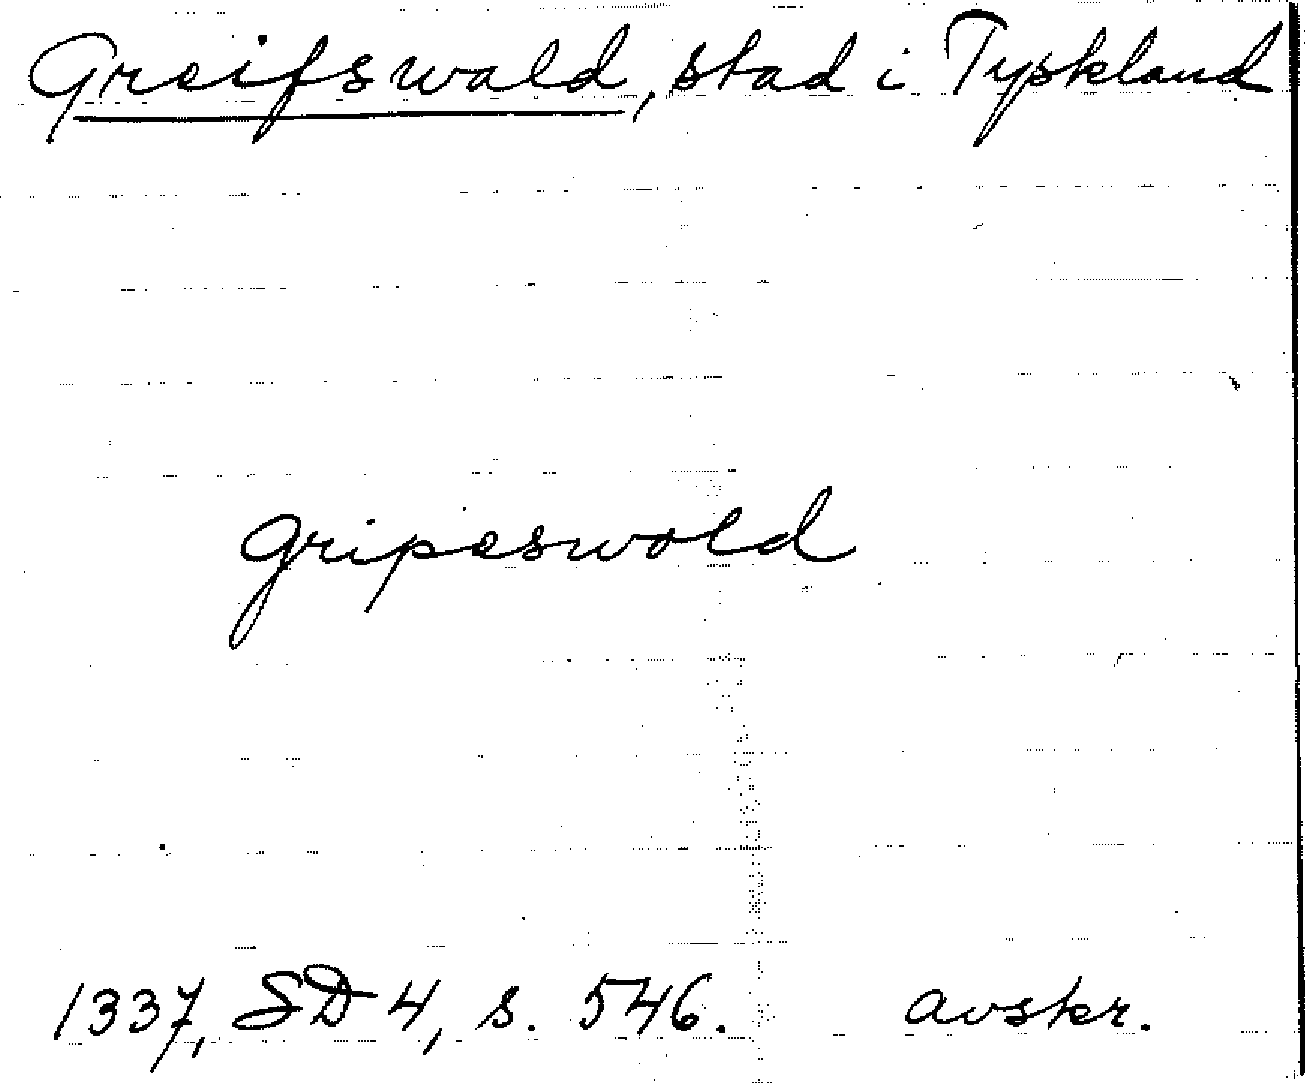 Greifswald, stad i Tyskland
gripeswold
1337, SD 4, s. 546. avskr.